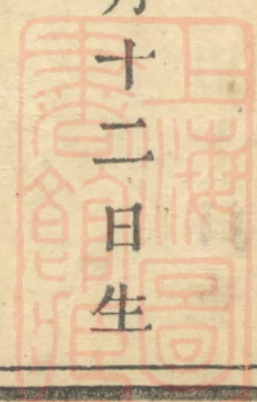 月十二日生
上海圖
書館藏